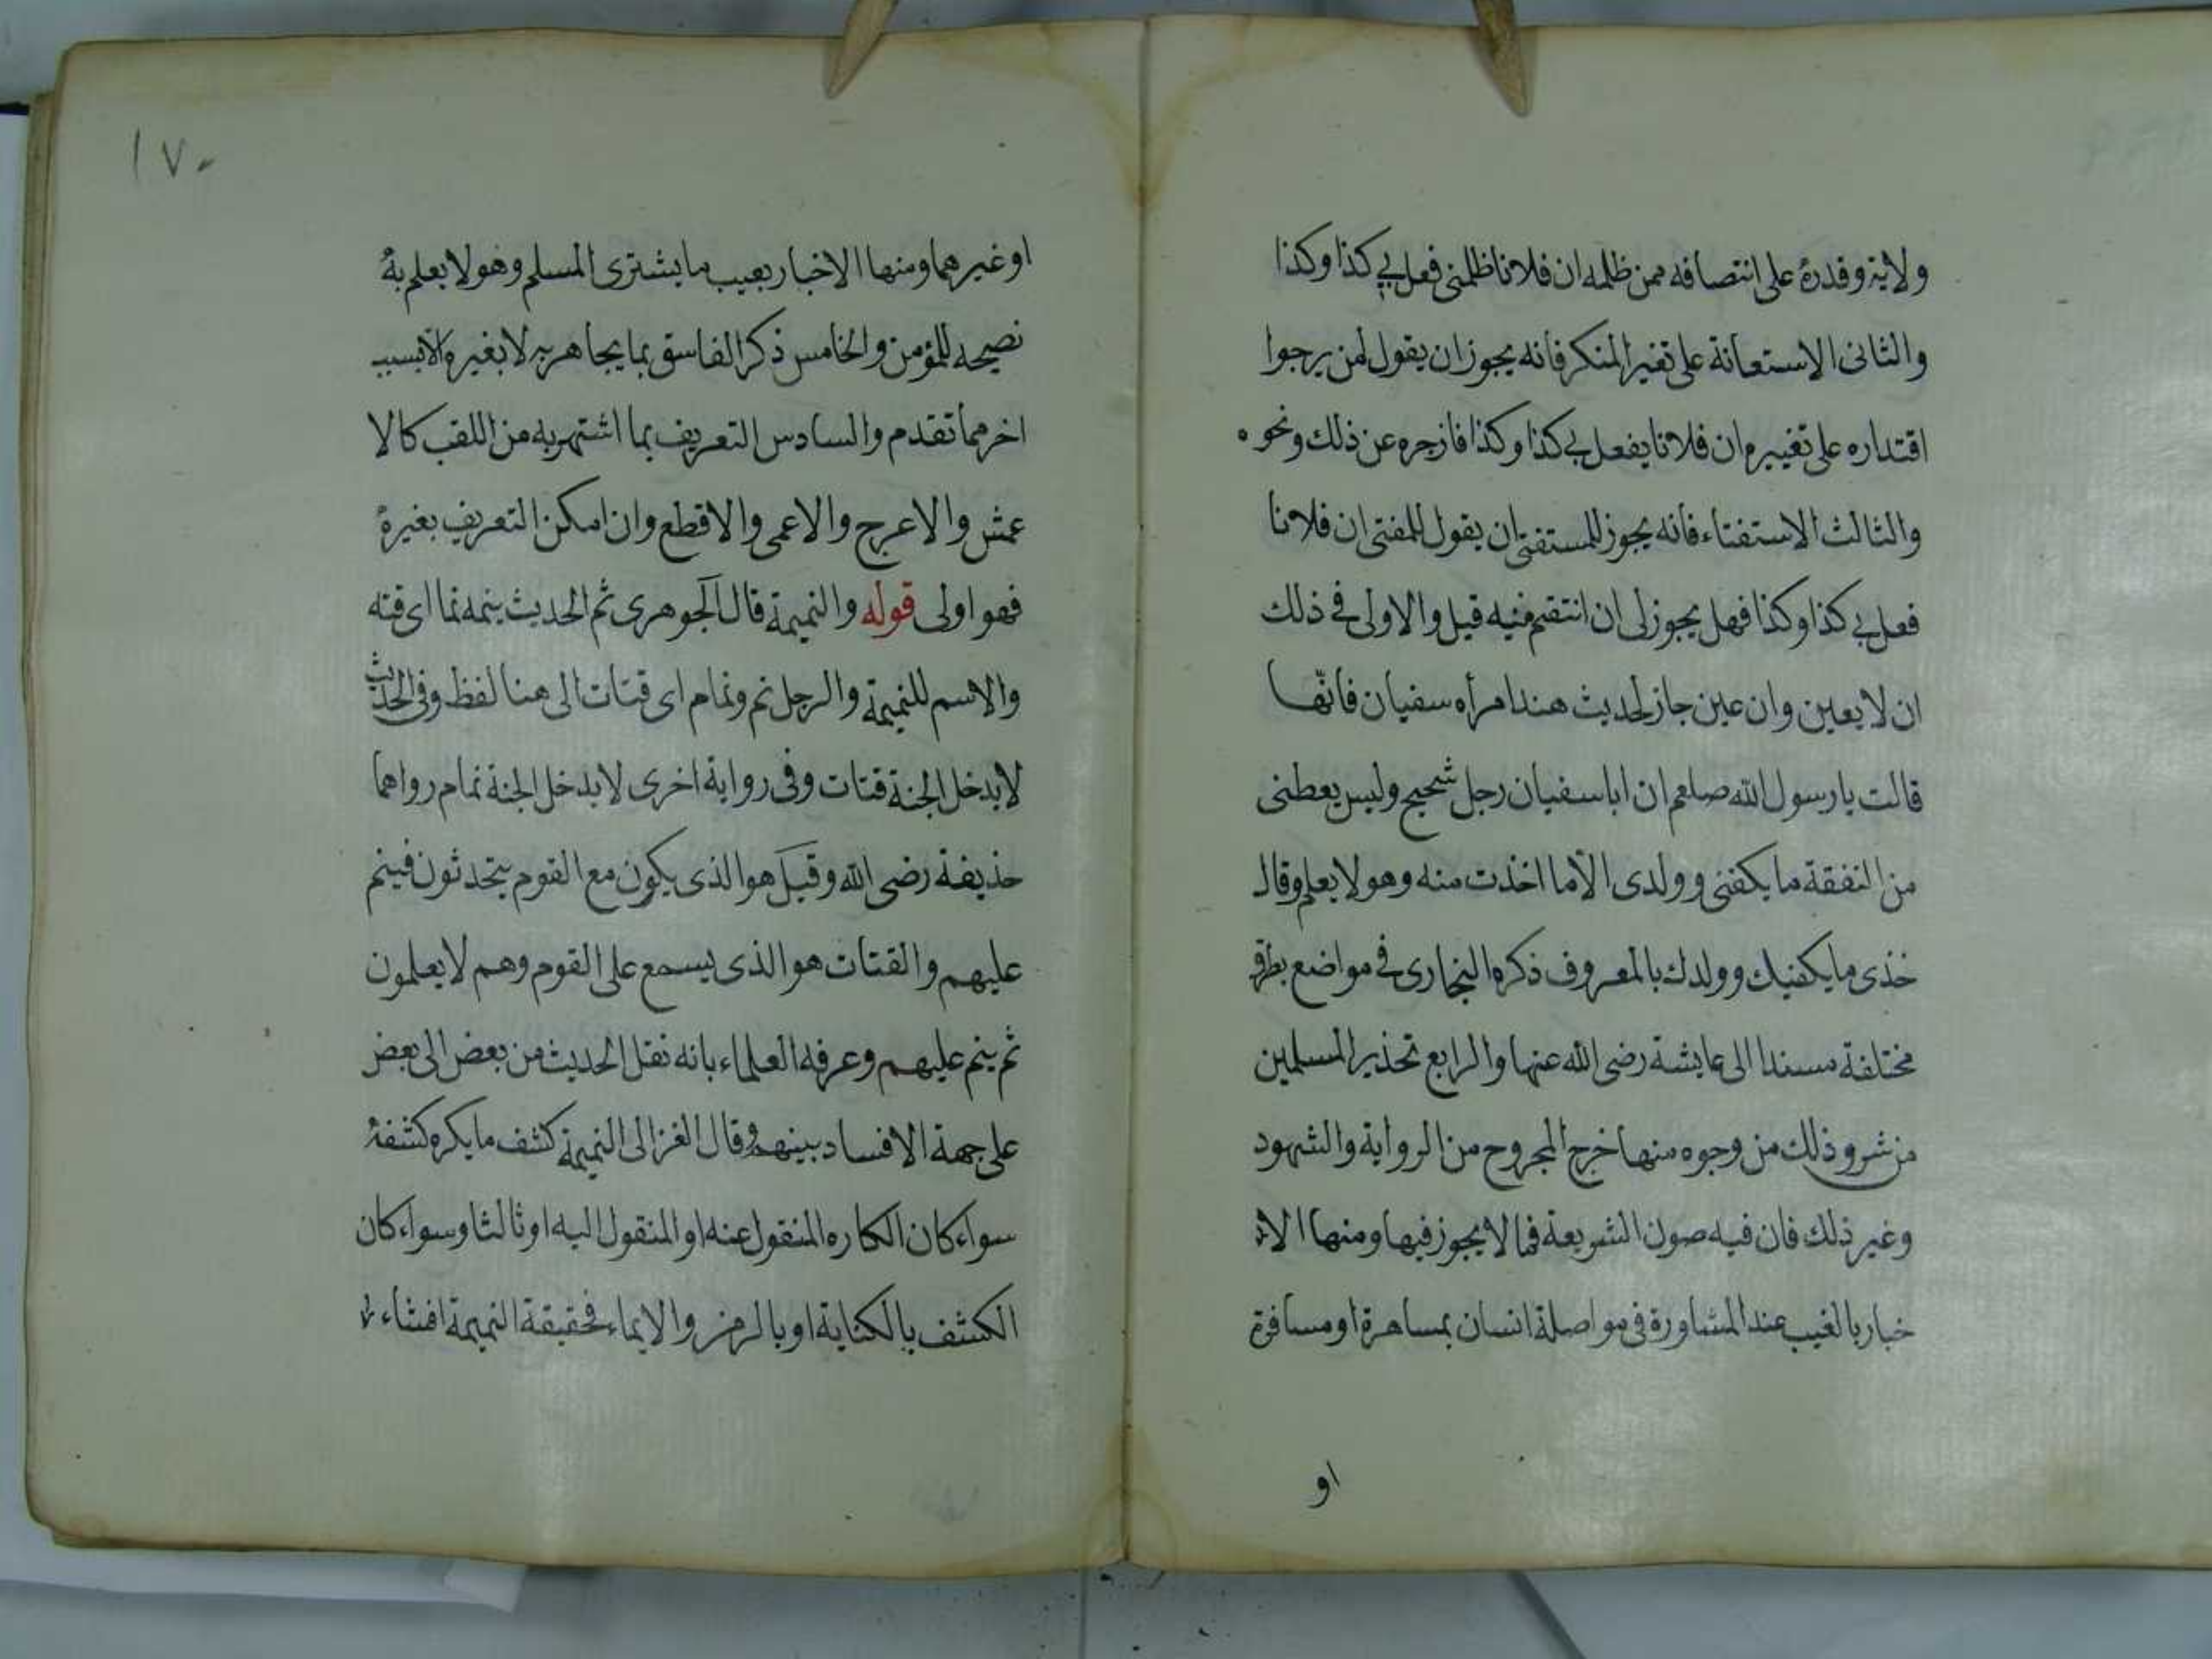 ولاية وقدرة على انتصافه ممن ظلمه ان فلانا ظلمنى فعل بي كذا وكذا
والثانى الاستعانة على تغير المنكر فانه يجوز ان يقول لمن يرجوا
اقتداره على تغييره ان فلانا يفعل بي كذا وكذا فازجره عن ذلك ونحوه
والثالث الاستفتاء فانه يجوز للمستفتى ان يقول للمفتى ان فلانا
فعل بي كذا وكذا فهل يجوز لى ان انتقم منيه قيل والاولى فى ذلك
ان لا يعين وان عين جاز لحديث هند امرأه سفيان فانها
قالت يا رسول الله صلعم ان ابا سفيان رجل شحيح وليس يعطنى
من النفقة ما يكفنى وولدى الا ما اخذت منه وهو لا يعلم وقال
خذى ما يكفيك وولدك بالمعروف ذكره البخارى فى مواضع بطرق
مختلفة مسندا الى عايشة رضى الله عنها والرابع تحذير المسلمين
من شر وذلك من وجوه منها خرج المجروح من الرواية والشهود
وغير ذلك فان فيه صون الشريعة فما لا يجوز فيها ومنها الا
خبار بالغيب عند المشاورة فى مواصلة انسان بمساهرة او مسافرة
او
١٧٠
او غيرهما ومنها الاخبار بعيب ما يشترى المسلم وهو لا يعلم به
نصيحه للمؤمن والخامس ذكر الفاسق بما يجاهر به لا بغيره الا بسبب
اخر مما تقدم والسادس التعريف بما اشتهر به من اللقب كالا
عمش والاعرج والاعمى والاقطع وان امكن التعريف بغيره
فهو اولى قوله والنميمة قال الجوهرى نم الحديث ينمه نما اى قته
والاسم للنميمة والرجل نم ونمام اى قتات الى هنا لفظ وفى الحديث
لا يدخل الجنة قتات وفى رواية اخرى لا يدخل الجنة نمام رواهما
حذيفة رضى الله وقيل هو الذى يكون مع القوم يتحدثون فينم
عليهم والقتات هو الذى يسمع على القوم وهم لا يعلمون
ثم ينم عليهم وعرفه العلماء بانه نقل الحديث من بعض الى بعض
على جهة الافساد بينهم وقال الغزالى النميمة كشف ما يكره كشفه
سواء كان الكاره المنقول عنه او المنقول اليه او ثالثا وسواء كان
الكشف بالكناية او بالرمز والايماء فحقيقة النميمة افشاء